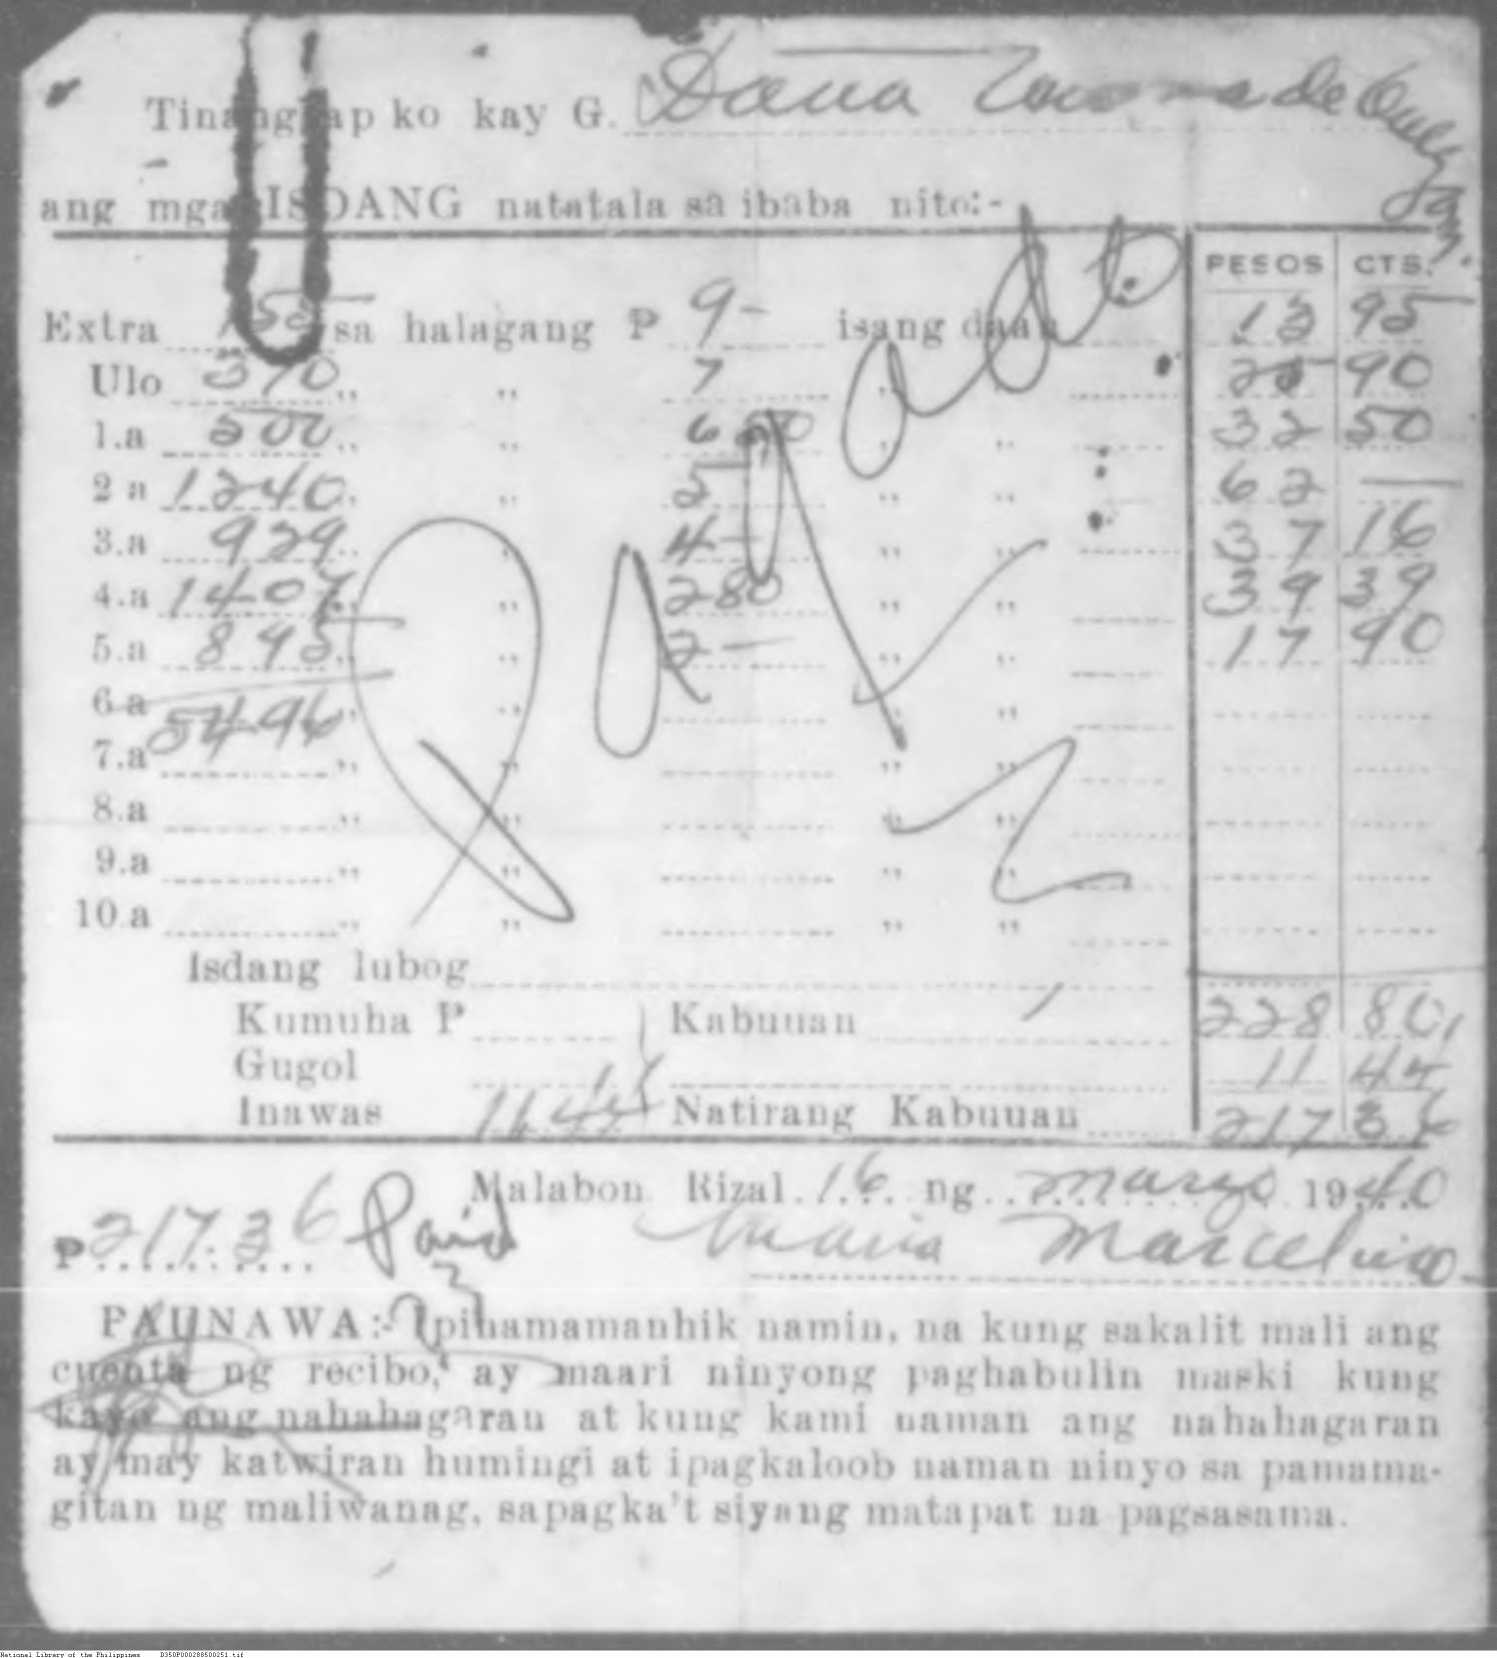 Tinanggap ko kay G. Doña de
ang mga ISDANG natatala sa ibaba nito:-
PESOS CTS.
Extra 155 sa halagang ₱ 9- isang daan 13 95
Ulo 370 ,, ,, 7 ,, ,, 25 90
1.a 500 ,, ,, 6 50 ,, ,, 32 50
2 a 1240 ,, ,, 5- ,, ,, 62 —
3.a 929 ,, ,, 4- ,, ,, 37 16
4.a 1407 ,, ,, 280 ,, ,, 39 39
5.a 895 ,, ,, 2- ,, ,, 17 90
6 a ,, ,, ,, ,,
5496
7.a ,, ,, ,, ,,
8.a ,, ,, ,, ,,
9.a ,, ,, ,, ,,
10.a ,, ,, ,, ,,
Isdang lubog
Kumuha P Kabuuan 228 80
Gugol 11 44
Inawas 11.44 Natirang Kabuuan 217 36
Malabon Rizal 16 ng marzo 1940
₱ 217.36 Paid Maria Marcelino
PAUNAWA:- Ipinamamanhik namin, na kung sakalit mali ang
cuenta ng recibo, ay maari ninyong paghabulin maski kung
kayo ang nahahagaran at kung kami naman ang nahahagaran
ay may katwiran humingi at ipagkaloob naman ninyo sa pamama-
gitan ng maliwanag, sapagka't siyang matapat na pagsasama.
National Library of the Philippines D350P000288500251.tif